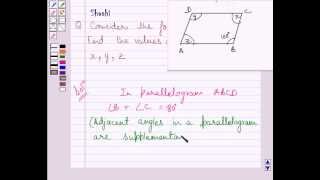 Shashi
Q Consider the fo
Find the values o
x, y, z
D
C
y
x
z
100°
A
B
Soln
In parallelogram ABCD
∠B + ∠C = 180°
(Adjacent angles in a parallelogram
are supplementar